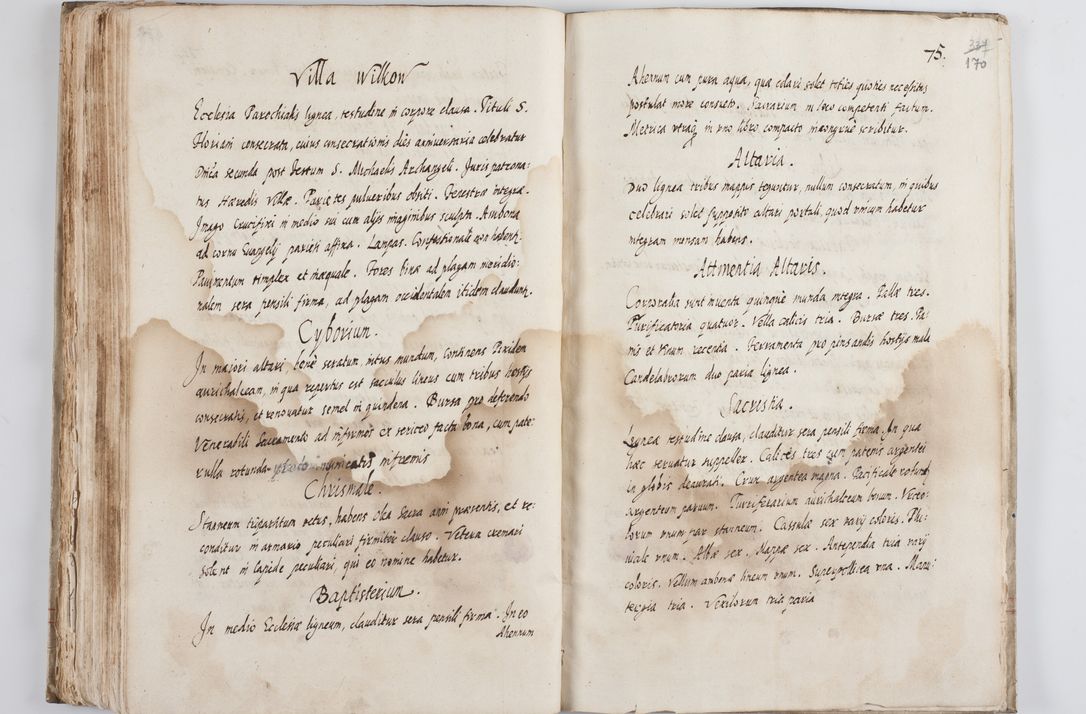 Villa Wilkow
Ecclesia Parochialis lignea, testudine in corpore clausa. Tituli S.
Floriani consecrata, cuius consecrationis dies anniversaria celebratur
Dnica secunda post Festum S. Michaelis Archangeli. Juris patrona:
tus Hæredis Villæ. Parietes pulueribus obsiti. Fenestræ integræ.
Imago Crucifixi in medio sui cum alijs imaginibus sculpta. Ambona
ad cornu Euangelij parieti affixa. Lampas. Confessionale non habent:
Pauimentum simplex et inæquale. Fores binæ ad plagam meridio:
nalem sera pensili firma, ad plagam occidentalem itidem claudunt.
Cyborium.
In maiori altari, bene seratum, intus mundum, continens Pixidem
aurichalceam, in qua repertus est sacculus lineus cum tribus hostijs
consecratis, et renouatur semel in quindena. Bursa pro deferendo
Venerabili Sacramento ad infirmos ex sericeo facta bona, cum pate:
rulla rotunda infirmis
Chrismale.
Stanneum tripartitum vetus, habens Olea Sacra anni præsentis, et re:
conditur in armario peculiari firmiter clauso. Vetera cremari
solent in lapide peculiari, qui eo nomine habetur.
Baptisterium.
In medio Ecclesiæ ligneum, clauditur sera pensili firma. In eo
Ahenum
75.
170
Ahenum cum pura aqua, quæ colari solet toties quoties necessitas
postulat more consueto. Sacrarium in loco competenti factum.
Metrica utraq in vno libro compacto incongruè scribitur.
Altaria.
Duo lignea tribus mappis teguntur, nullum consecratum, in quibus
celebrari solet supposito altari portali, quod vnicum habetur
integram mensam habens.
Attinentia Altaris.
Corporalia sunt inuenta quinque munda integra. Pallæ tres.
Purificatoria quatuor. Vella calicis tria. Bursæ tres. Pa:
nis et vinum recentia. Ferramenta pro pinsandis hostijs mala
Candelabrorum duo paria lignea.
Sacrestia.
Lignea testudine clausa, clauditur sera pensili firma. In qua
hæc seruatur suppellex. Calices tres cum patenis argentei
in globis deaurati. Crux argentea magna. Pacificale rotund
argenteum paruum. Turriferarium aurichalceum bonum. Vrceo:
lorum vnum par stanneum. Casulæ sex varij coloris. Plu:
uiale vnum. Albæ sex. Mappæ sex. Antependia tria varij
coloris. Vellum ambonæ lineum vnum. Superpellicea vna. Manu:
tergia tria. Vexillorum tria paria